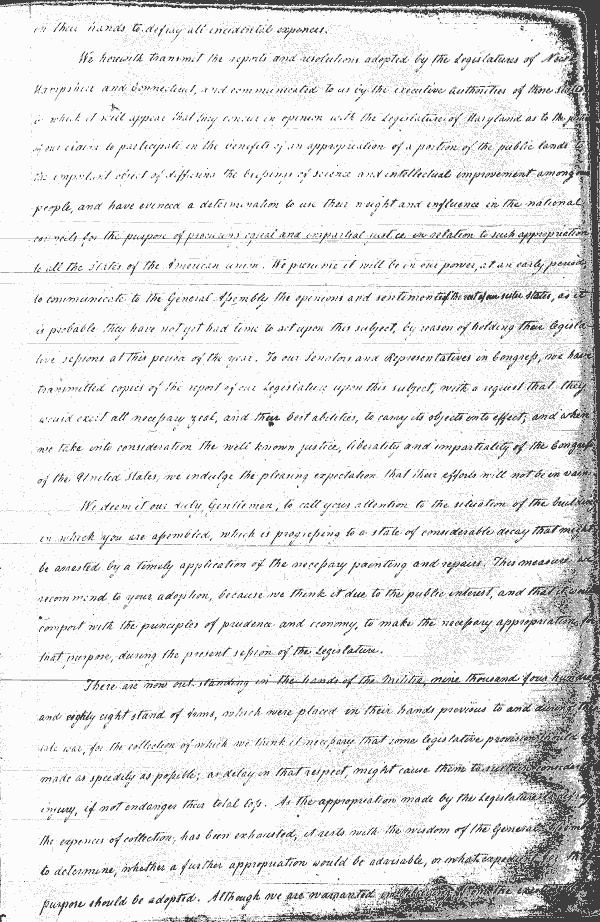 in their hands to defray all incidental expences.
We herewith transmit the reports and resolutions adopted by the Legislatures of New
Hampshire and Connecticut, and communicated to us by the executive authorities of those States
which it will appear that they concur in opinion with the Legislature of Maryland as to the
of our claim to participate in the benefits of an appropriation of a portion of the public lands to
the important object of diffusing the blessings of science and intellectual improvement among our
people, and have evinced a determination to use their weight and influence in the national
councils for the purpose of procuring equal and impartial justice in relation to such appropriation
to all the States of the American union. We presume it will be in our power, at an early period,
to communicate to the General Assembly the opinions and sentiments of the rest of our sister States, as it
is probable they have not yet had time to act upon this subject, by reason of holding their legisla-
tive sessions at this period of the year. To our Senators and Representatives in Congress, we have
transmitted copies of the report of our Legislature upon this subject, with a request that they
would exert all necessary zeal, and their best abilities, to carry its objects into effect; and when
we take into consideration the well known justice, liberality and impartiality of the Congress
of the United States, we indulge the pleasing expectation that their efforts will not be in vain.
We deem it our duty, Gentlemen, to call your attention to the situation of the building
in which you are assembled, which is progressing to a state of considerable decay that might
be arrested by a timely application of the necessary painting and repairs. This measure we
recommend to your adoption, because we think it due to the public interest, and that it would
comport with the principles of prudence and economy, to make the necessary appropriation for
that purpose, during the present session of the Legislature.
There are now out standing in the hands of the Militia, nine thousand four hundred
and eighty eight stand of Arms, which were placed in their hands previous to and during the
late war, for the collection of which we think it necessary that some legislative provision should
made as speedily as possible; as delay in that respect, might cause them to sustain
injury, if not endanger their total loss. As the appropriation made by the Legislature
the expences of collection, has been exhausted, it rests with the wisdom of the General
to determine, whether a further appropriation would be advisable, or what expedient for
purpose should be adopted. Although we are warranted in